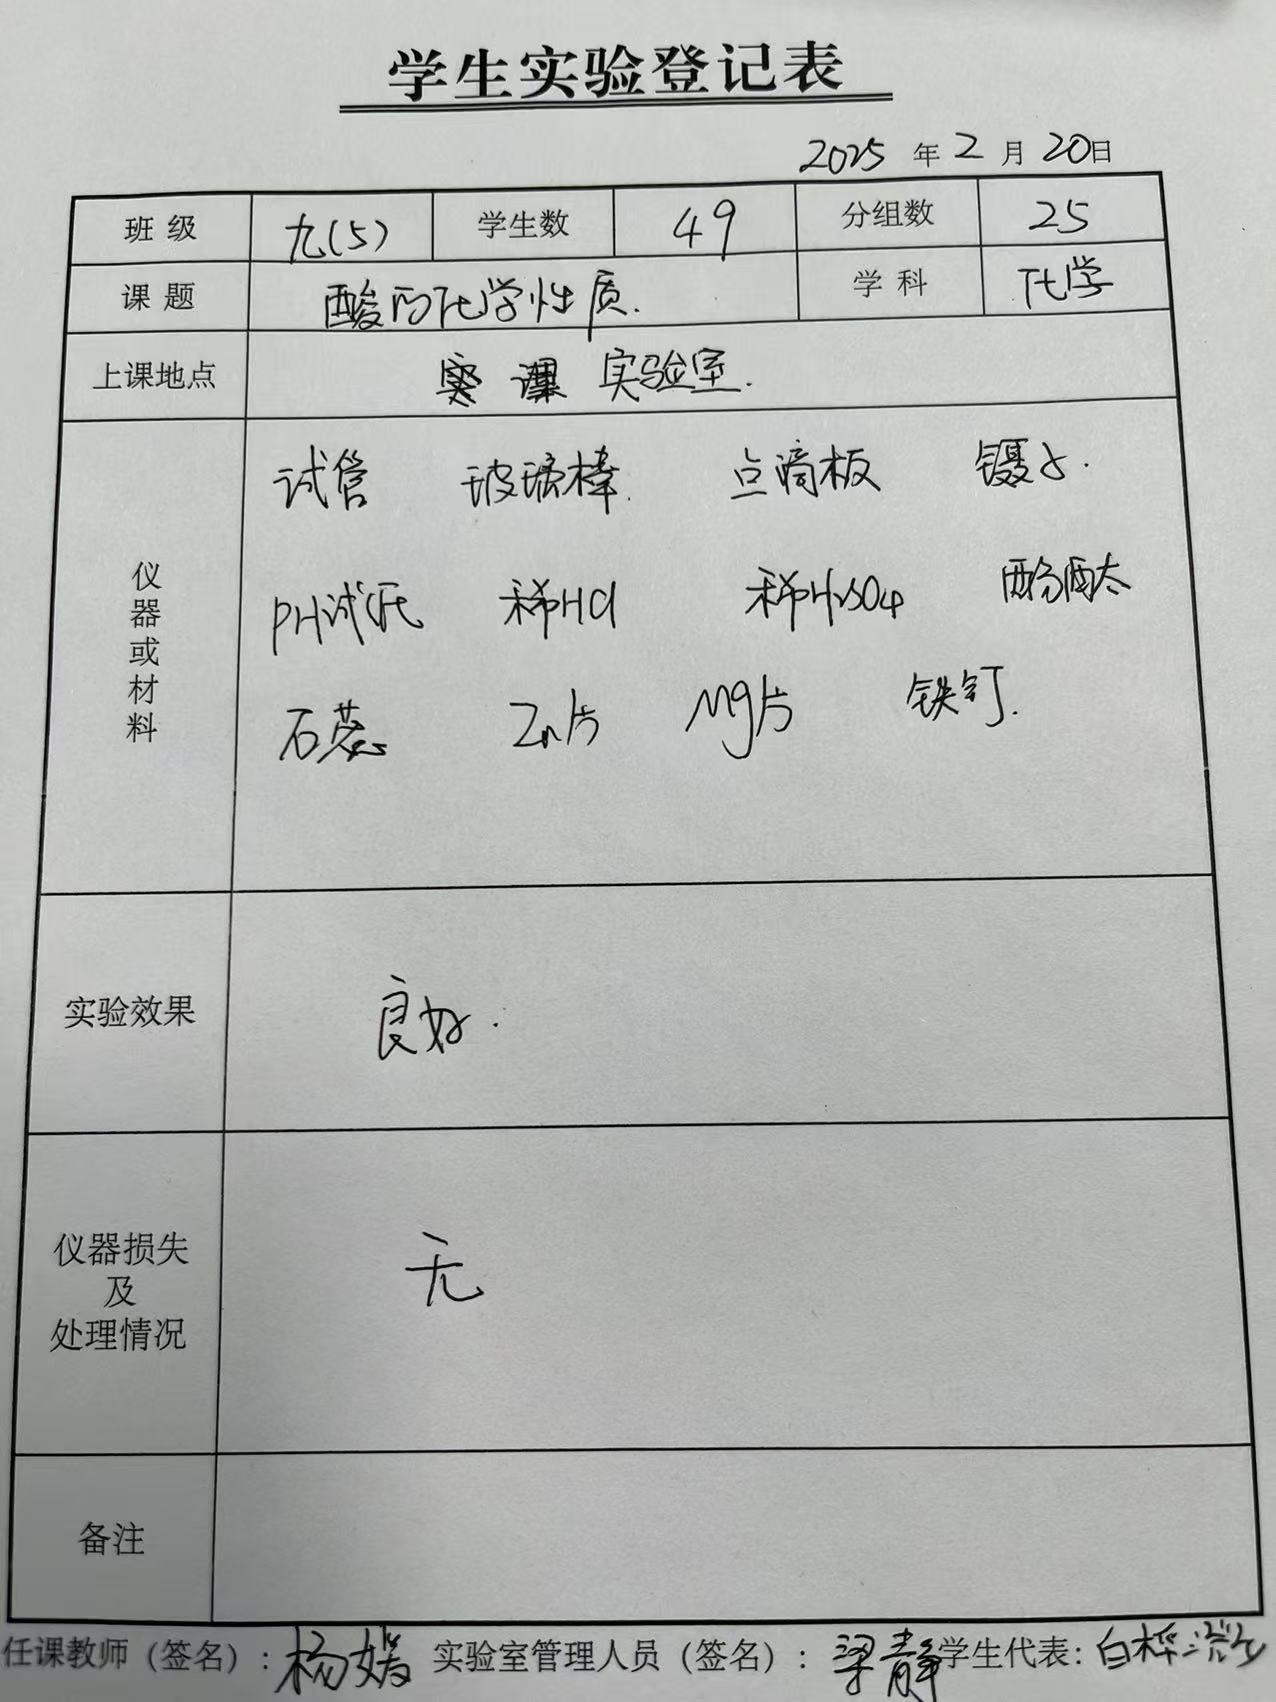 学生实验登记表
2025 年 2 月 20日
班 级 九(5) 学生数 49 分组数 25
课 题 酸的化学性质. 学 科 化学
上课地点 实验室.
试管 玻璃棒. 点滴板 镊子.
仪器或材料 PH试纸 稀HCl 稀H2SO4 酚酞
石蕊 Zn片 Mg片 铁钉.
实验效果 良好.
仪器损失
及 无
处理情况
备注
任课教师（签名）: 杨媛 实验室管理人员（签名）: 梁静 学生代表: 白桦